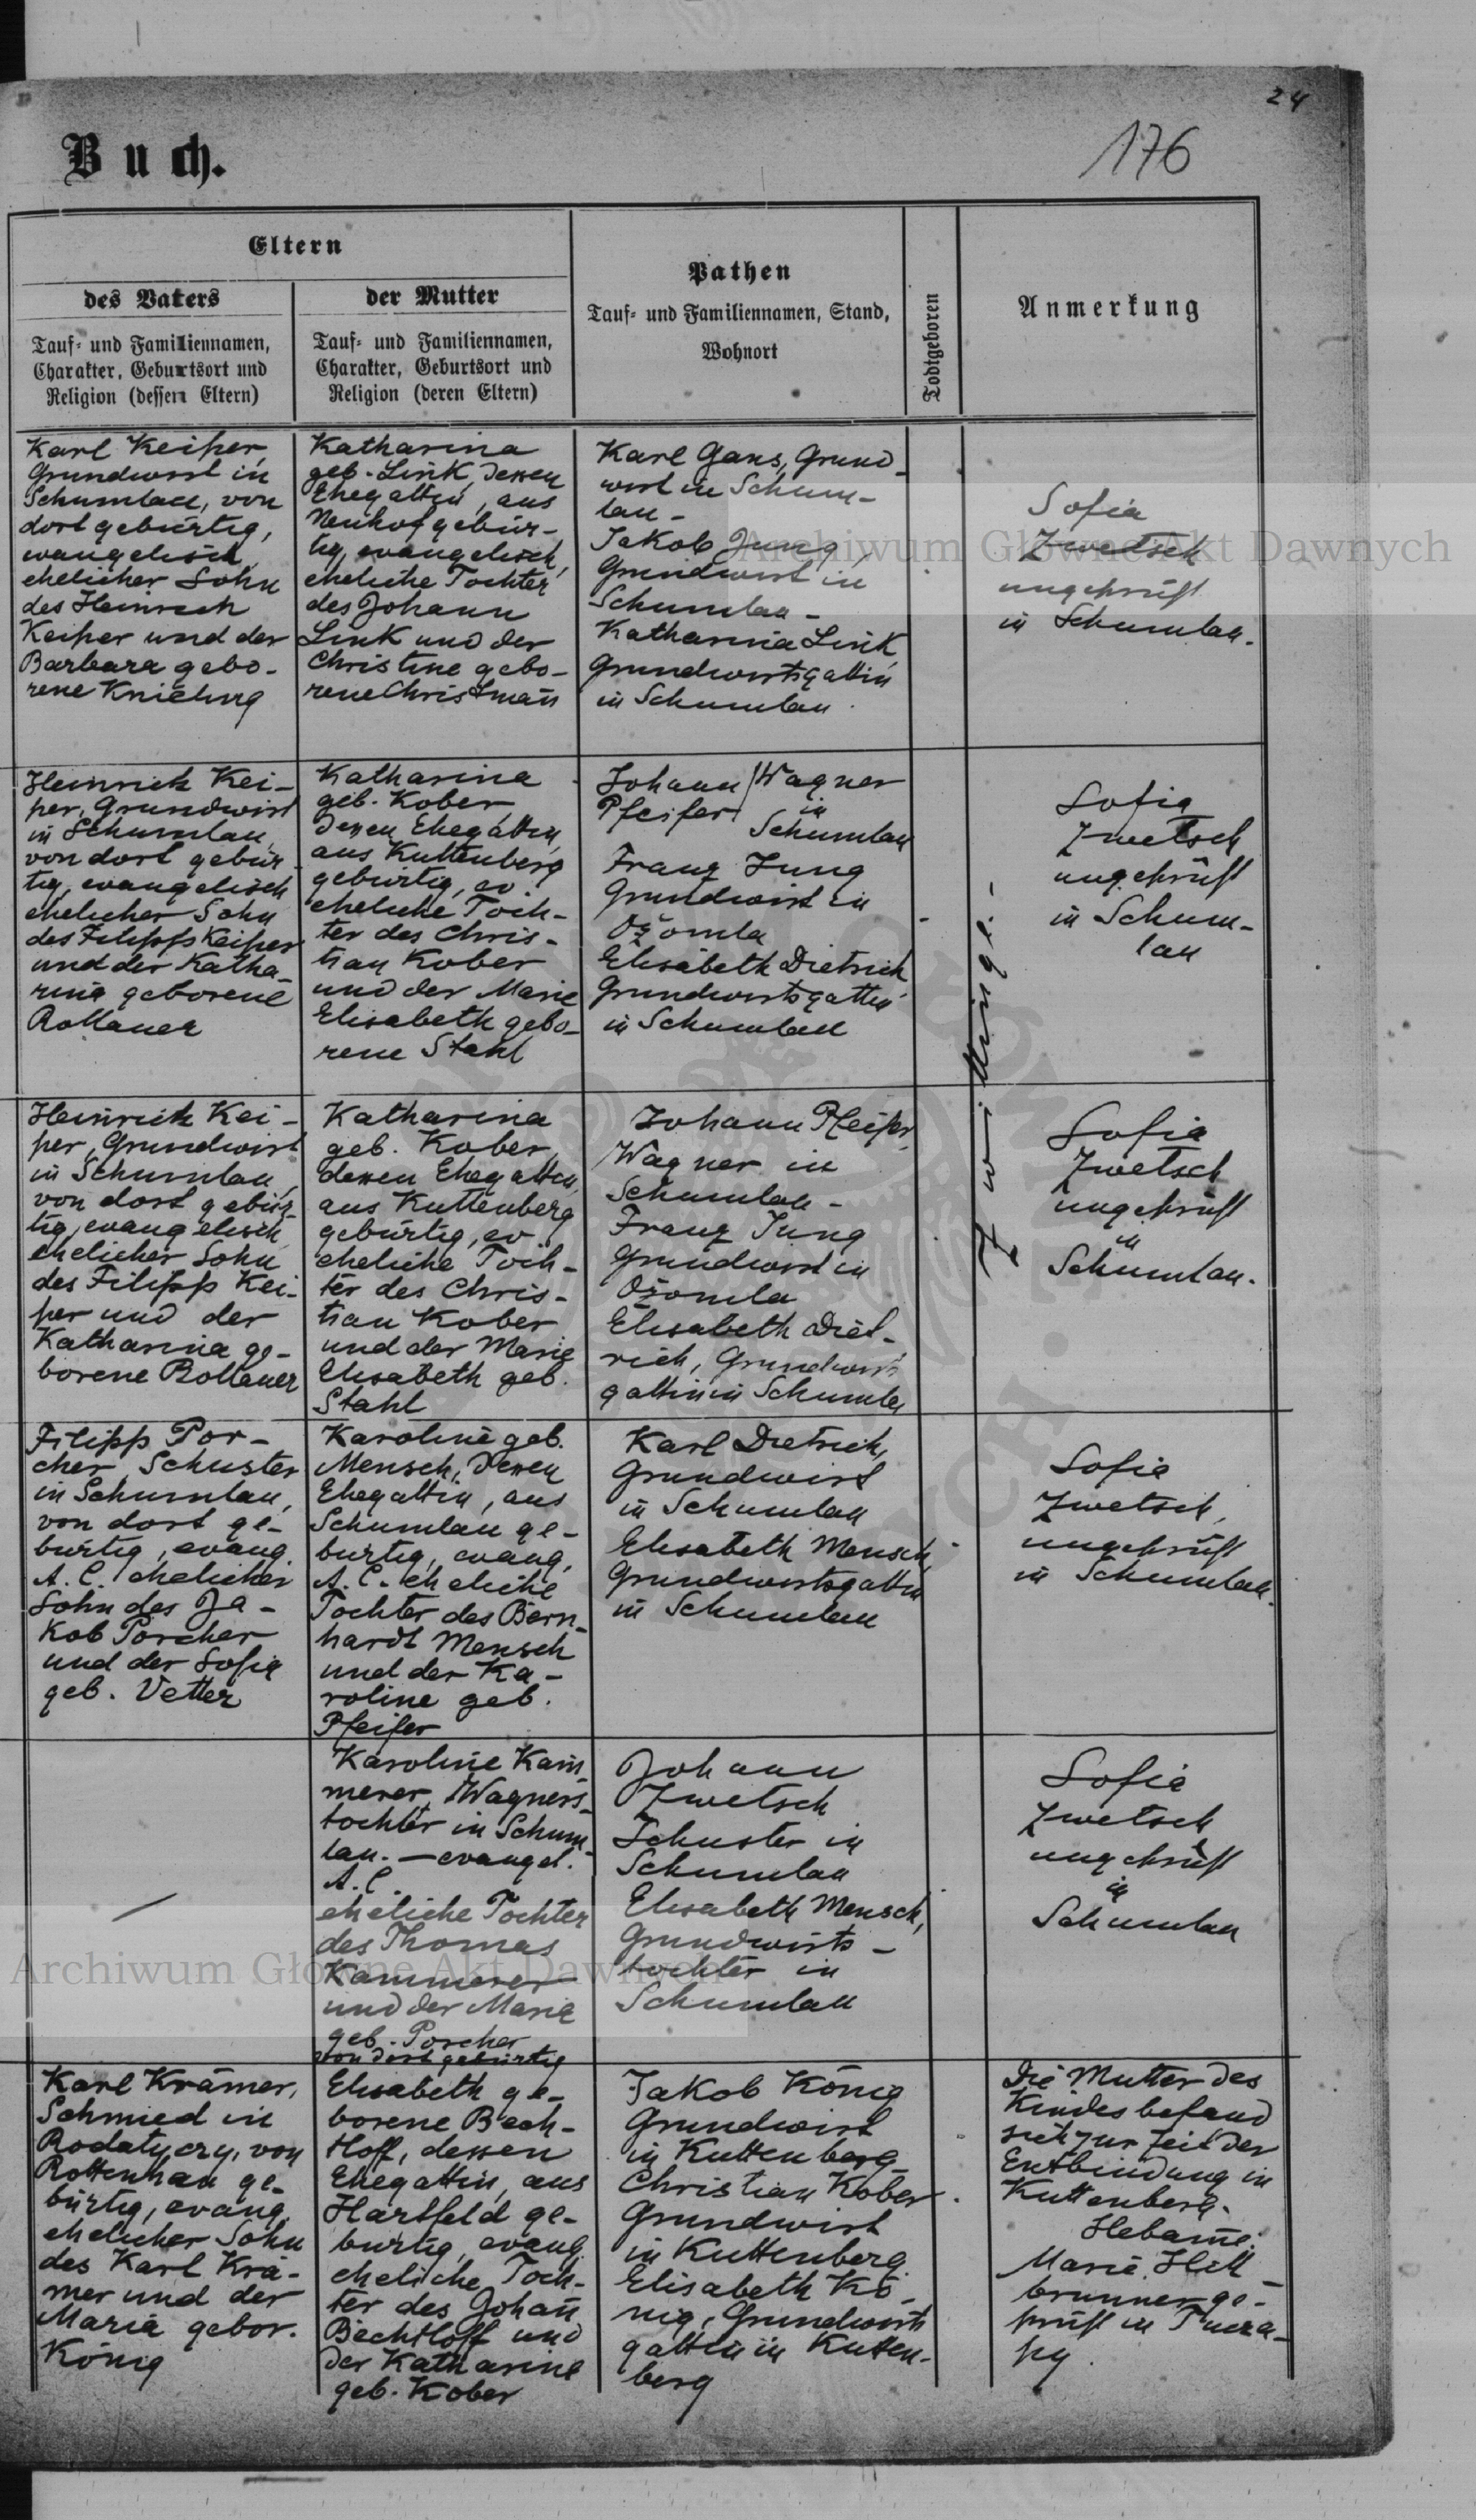 24
176
Buch.
Eltern
des Vaters
Tauf- und Familiennamen,
Charakter, Geburtsort und
Religion (dessen Eltern)
der Mutter
Tauf- und Familiennamen,
Charakter, Geburtsort und
Religion (deren Eltern)
Pathen
Tauf- und Familiennamen, Stand,
Wohnort
Todtgeboren
Anmerkung
Karl Keiper,
Grundwirt in
Schumlau, von
dort gebürtig,
evangelisch,
ehelicher Sohn
des Heinrich
Keiper und der
Barbara gebo-
rene Knieling
Katharina
geb. Link, dessen
Ehegattin, aus
Neuhof gebür-
tig, evangelisch,
eheliche Tochter
des Johann
Link und der
Christine gebo-
rene Christman̄
Karl Gans, Grund-
wirt in Schum-
lau -
Jakob Jung,
Grundwirt in
Schumlau -
Katharina Link
Grundwirtsgattin
in Schumlau.
Sofia
Zwetsch
ungeprüft
in Schumlau.
Heinrich Kei-
per, Grundwirt
in Schumlau,
von dort gebür-
tig, evangelisch
ehelicher Sohn
des Filipps Keiper
und der Katha-
rina geborene
Rollauer
Katharina
geb. Kober,
dessen Ehegattin,
aus Kuttenberg
gebürtig, ev.
eheliche Toch-
ter des Chris-
tian Kober
und der Marie
Elisabeth gebo-
rene Stahl
Johann / Wagner
Pfeifer in
Schumlau
Franz Jung
Grundwirt in
Ożomla
Elisabeth Dietrich
Grundwirtsgattin
in Schumlau
Zwillinge.-
Sofia
Zwetsch
ungeprüft
in Schum-
lau
Heinrich Kei-
per, Grundwirt
in Schumlau,
von dort gebür-
tig, evangelisch
ehelicher Sohn
des Filipp Kei-
per und der
Katharina ge-
borene Rollauer
Katharina
geb. Kober,
dessen Ehegattin,
aus Kuttenberg
gebürtig, ev.
eheliche Toch-
ter des Chris-
tian Kober
und der Marie
Elisabeth geb.
Stahl
Johann Pfeifer,
Wagner in
Schumlau -
Franz Jung
Grundwirt in
Ożomla
Elisabeth Diet-
rich, Grundwirts
gattin in Schumlau
Sofia
Zwetsch
ungeprüft
in
Schumlau.
Filipp Por-
cher, Schuster
in Schumlau,
von dort ge-
bürtig, evang.
A. C. ehelicher
Sohn des Ja-
kob Porcher
und der Sofia
geb. Vetter
Karoline geb.
Mensch, dessen
Ehegattin, aus
Schumlau ge-
bürtig, evang.
A. C. eheliche
Tochter des Bern-
hardt Mensch
und der Ka-
roline geb.
Pfeifer
Karl Dietrich,
Grundwirt
in Schumlau
Elisabeth Mensch,
Grundwirtsgattin
in Schumlau
Sofia
Zwetsch,
ungeprüft
in Schumlau.
Karoline Kam̄
merer, Wagners-
tochter in Schum-
lau. - evangel.
A. C.
eheliche Tochter
des Thomas
Kammerer
und der Maria
geb. Porcher
von dort gebürtig
Johann
Zwetsch
Schuster in
Schumlau
Elisabeth Mensch,
Grundwirts-
tochter in
Schumlau
Sofia
Zwetsch
ungeprüft
in
Schumlau
Karl Krämer,
Schmied in
Rodatycze, von
Rottenhan ge-
bürtig, evang.
ehelicher Sohn
des Karl Krä-
mer und der
Maria gebor.
König
Elisabeth ge-
borene Bech-
tloff, dessen
Ehegattin, aus
Hartfeld ge-
bürtig, evang.
eheliche Toch-
ter des Johan̄
Bechtloff und
der Katharine
geb. Kober
Jakob König
Grundwirt
in Kuttenberg
Christian Kober
Grundwirt
in Kuttenberg.
Elisabeth Kö-
nig, Grundwirts
gattin in Kutten-
berg
Die Mutter des
Kindes befand
sich zur Zeit der
Entbindung in
Kuttenberg.
Hebam̄e:
Marie
geprüft in
Archiwum Główne Akt Dawnych
Archiwum Główne Akt Dawnych